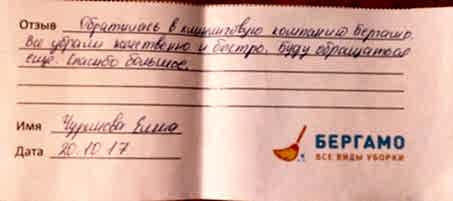 Отзыв Обратилась в клининговую компанию Бергамо.
Все убрали качественно и быстро. Буду обращаться
еще. Спасибо большое.
Имя Елена
Дата 20.10.17
БЕРГАМО
ВСЕ ВИДЫ УБОРКИ